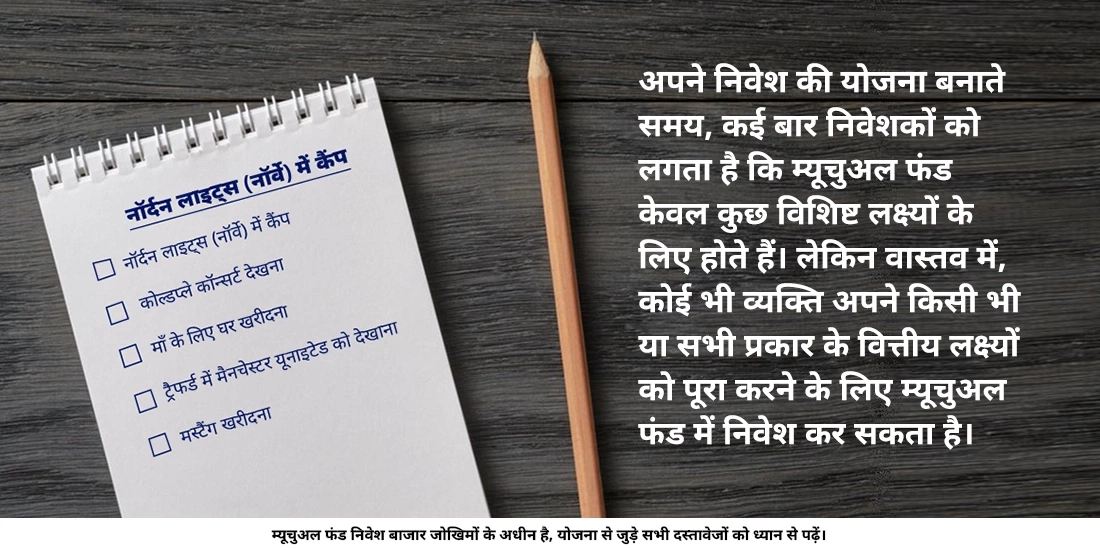 नॉर्दन लाइट्स (नॉर्वे) में कैंप
नॉर्दन लाइट्स (नॉर्वे) में कैंप
कोल्डप्ले कॉन्सर्ट देखना
माँ के लिए घर खरीदना
ट्रैफर्ड में मैनचेस्टर यूनाइटेड को देखाना
मस्टैंग खरीदना
अपने निवेश की योजना बनाते
समय, कई बार निवेशकों को
लगता है कि म्यूचुअल फंड
केवल कुछ विशिष्ट लक्ष्यों के
लिए होते हैं। लेकिन वास्तव में,
कोई भी व्यक्ति अपने किसी भी
या सभी प्रकार के वित्तीय लक्ष्यों
को पूरा करने के लिए म्यूचुअल
फंड में निवेश कर सकता है।
म्यूचुअल फंड निवेश बाजार जोखिमों के अधीन है, योजना से जुड़े सभी दस्तावेजों को ध्यान से पढ़ें।